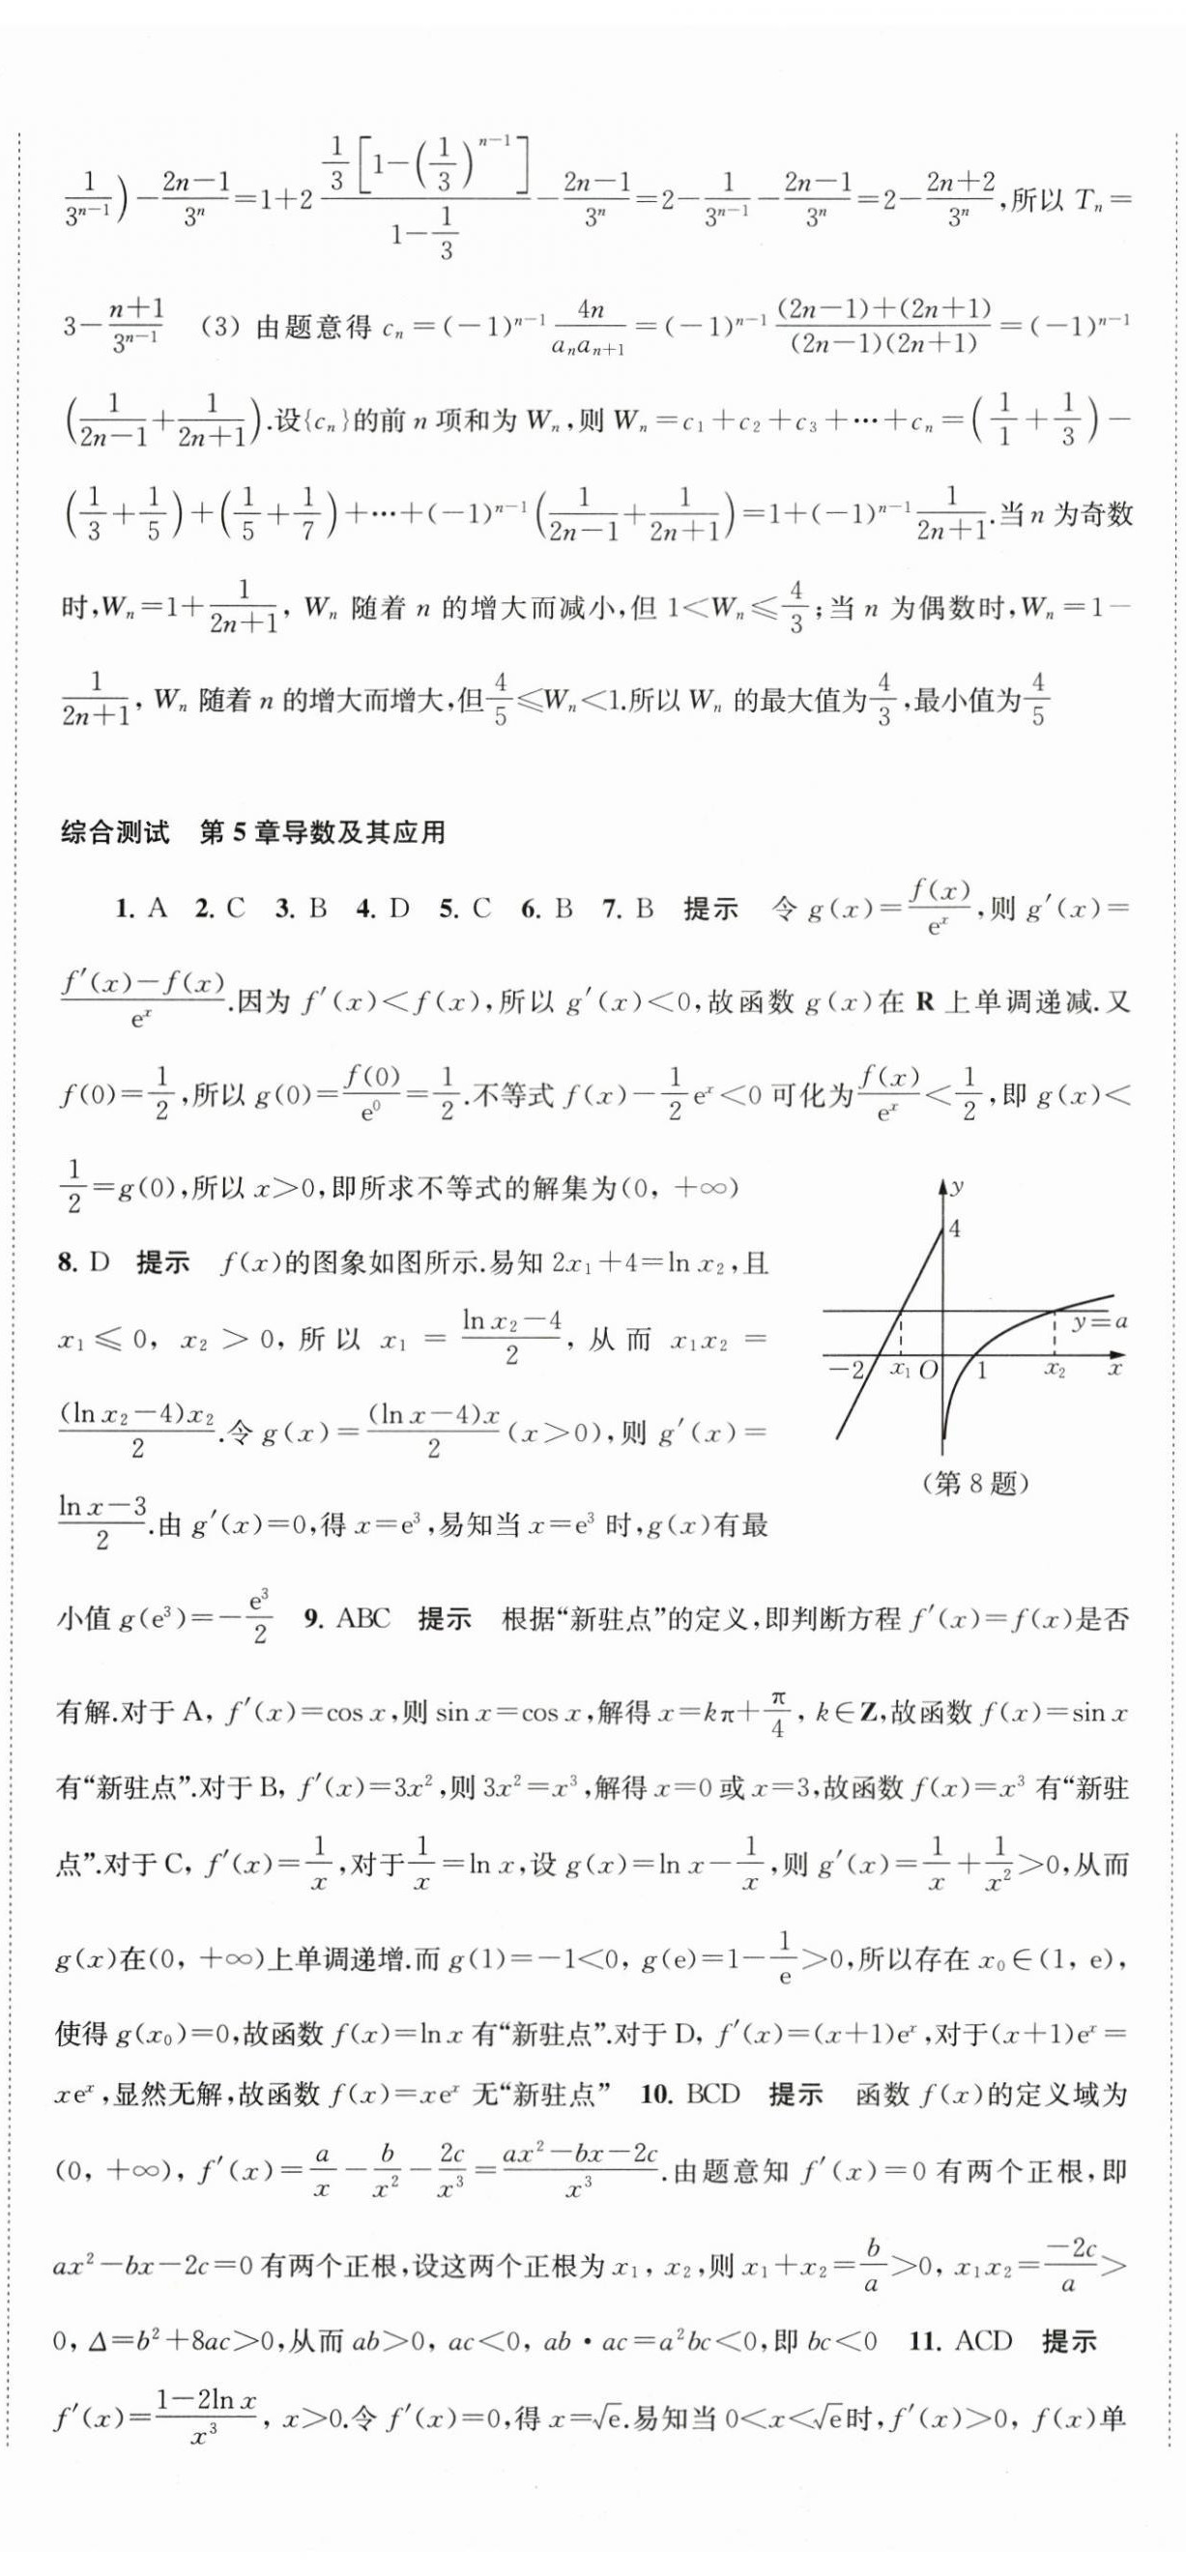 1/3ⁿ⁻¹)−(2n−1)/3ⁿ=1+2·(1/3[1−(1/3)ⁿ⁻¹])/(1−1/3)−(2n−1)/3ⁿ=2−1/3ⁿ⁻¹−(2n−1)/3ⁿ=2−(2n+2)/3ⁿ,所以 Tₙ=
3−(n+1)/3ⁿ⁻¹ (3) 由题意得 cₙ=(−1)ⁿ⁻¹ 4n/(aₙaₙ₊₁)=(−1)ⁿ⁻¹ ((2n−1)+(2n+1))/((2n−1)(2n+1))=(−1)ⁿ⁻¹
(1/(2n−1)+1/(2n+1)).设{cₙ}的前 n 项和为 Wₙ,则 Wₙ=c₁+c₂+c₃+⋯+cₙ=(1/1+1/3)−
(1/3+1/5)+(1/5+1/7)+⋯+(−1)ⁿ⁻¹(1/(2n−1)+1/(2n+1))=1+(−1)ⁿ⁻¹ 1/(2n+1).当 n 为奇数
时,Wₙ=1+1/(2n+1), Wₙ 随着 n 的增大而减小,但 1<Wₙ≤4/3;当 n 为偶数时,Wₙ=1−
1/(2n+1), Wₙ 随着 n 的增大而增大,但4/5≤Wₙ<1.所以 Wₙ 的最大值为4/3,最小值为4/5
综合测试 第 5 章导数及其应用
1. A 2. C 3. B 4. D 5. C 6. B 7. B 提示 令 g(x)=f(x)/eˣ,则 g′(x)=
(f′(x)−f(x))/eˣ.因为 f′(x)<f(x),所以 g′(x)<0,故函数 g(x)在 R 上单调递减.又
f(0)=1/2,所以 g(0)=f(0)/e⁰=1/2.不等式 f(x)−1/2 eˣ<0 可化为f(x)/eˣ<1/2,即 g(x)<
1/2=g(0),所以 x>0,即所求不等式的解集为(0, +∞)
8. D 提示 f(x)的图象如图所示.易知 2x₁+4=ln x₂,且
x₁≤0, x₂>0, 所以 x₁=(ln x₂−4)/2, 从而 x₁x₂=
(ln x₂−4)x₂/2.令 g(x)=(ln x−4)x/2(x>0),则 g′(x)=
(ln x−3)/2.由 g′(x)=0,得 x=e³,易知当 x=e³ 时,g(x)有最
y
4
y=a
−2 x₁ O 1 x₂ x
(第 8 题)
小值 g(e³)=−e³/2 9. ABC 提示 根据“新驻点”的定义,即判断方程 f′(x)=f(x)是否
有解.对于 A, f′(x)=cos x,则 sin x=cos x,解得 x=kπ+π/4, k∈Z,故函数 f(x)=sin x
有“新驻点”.对于 B, f′(x)=3x²,则 3x²=x³,解得 x=0 或 x=3,故函数 f(x)=x³ 有“新驻
点”.对于 C, f′(x)=1/x,对于1/x=ln x,设 g(x)=ln x−1/x,则 g′(x)=1/x+1/x²>0,从而
g(x)在(0, +∞)上单调递增.而 g(1)=−1<0, g(e)=1−1/e>0,所以存在 x₀∈(1, e),
使得 g(x₀)=0,故函数 f(x)=ln x 有“新驻点”.对于 D, f′(x)=(x+1)eˣ,对于(x+1)eˣ=
xeˣ,显然无解,故函数 f(x)=xeˣ 无“新驻点” 10. BCD 提示 函数 f(x)的定义域为
(0, +∞), f′(x)=a/x−b/x²−2c/x³=(ax²−bx−2c)/x³.由题意知 f′(x)=0 有两个正根,即
ax²−bx−2c=0 有两个正根,设这两个正根为 x₁, x₂,则 x₁+x₂=b/a>0, x₁x₂=−2c/a>
0, Δ=b²+8ac>0,从而 ab>0, ac<0, ab·ac=a²bc<0,即 bc<0 11. ACD 提示
f′(x)=(1−2ln x)/x³, x>0.令 f′(x)=0,得 x=√e.易知当 0<x<√e时,f′(x)>0, f(x)单